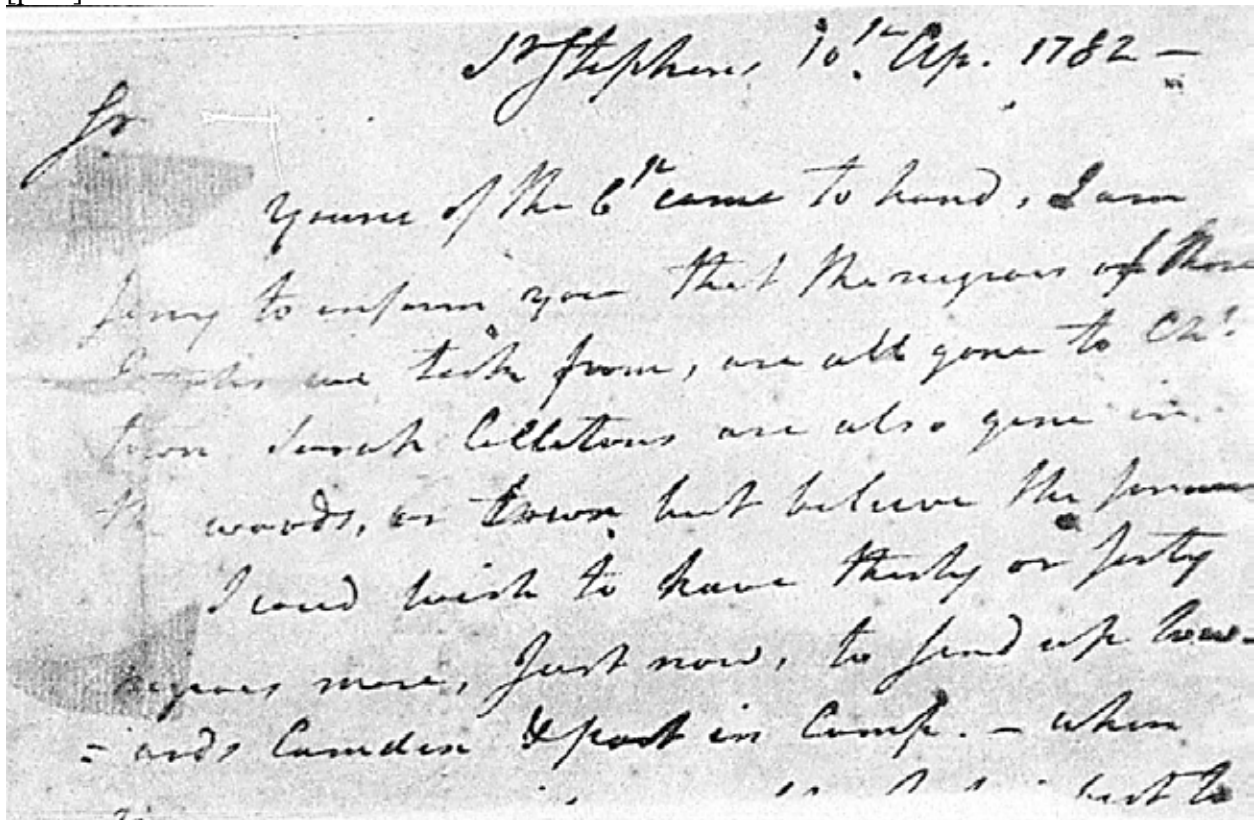 St Stephens 10th Ap. 1782 —
Sr
Yours of the 6th came to hand, I am
sorry to inform you that the negroes of those
Estates we took from, are all gone to Chs
town Sarah Colletons are also gone in
the woods, or town but believe the former
I coud wish to have thirty or forty
negroes more, Just now, to send up tow-
= ards Camden & part in Camp. — when
best to